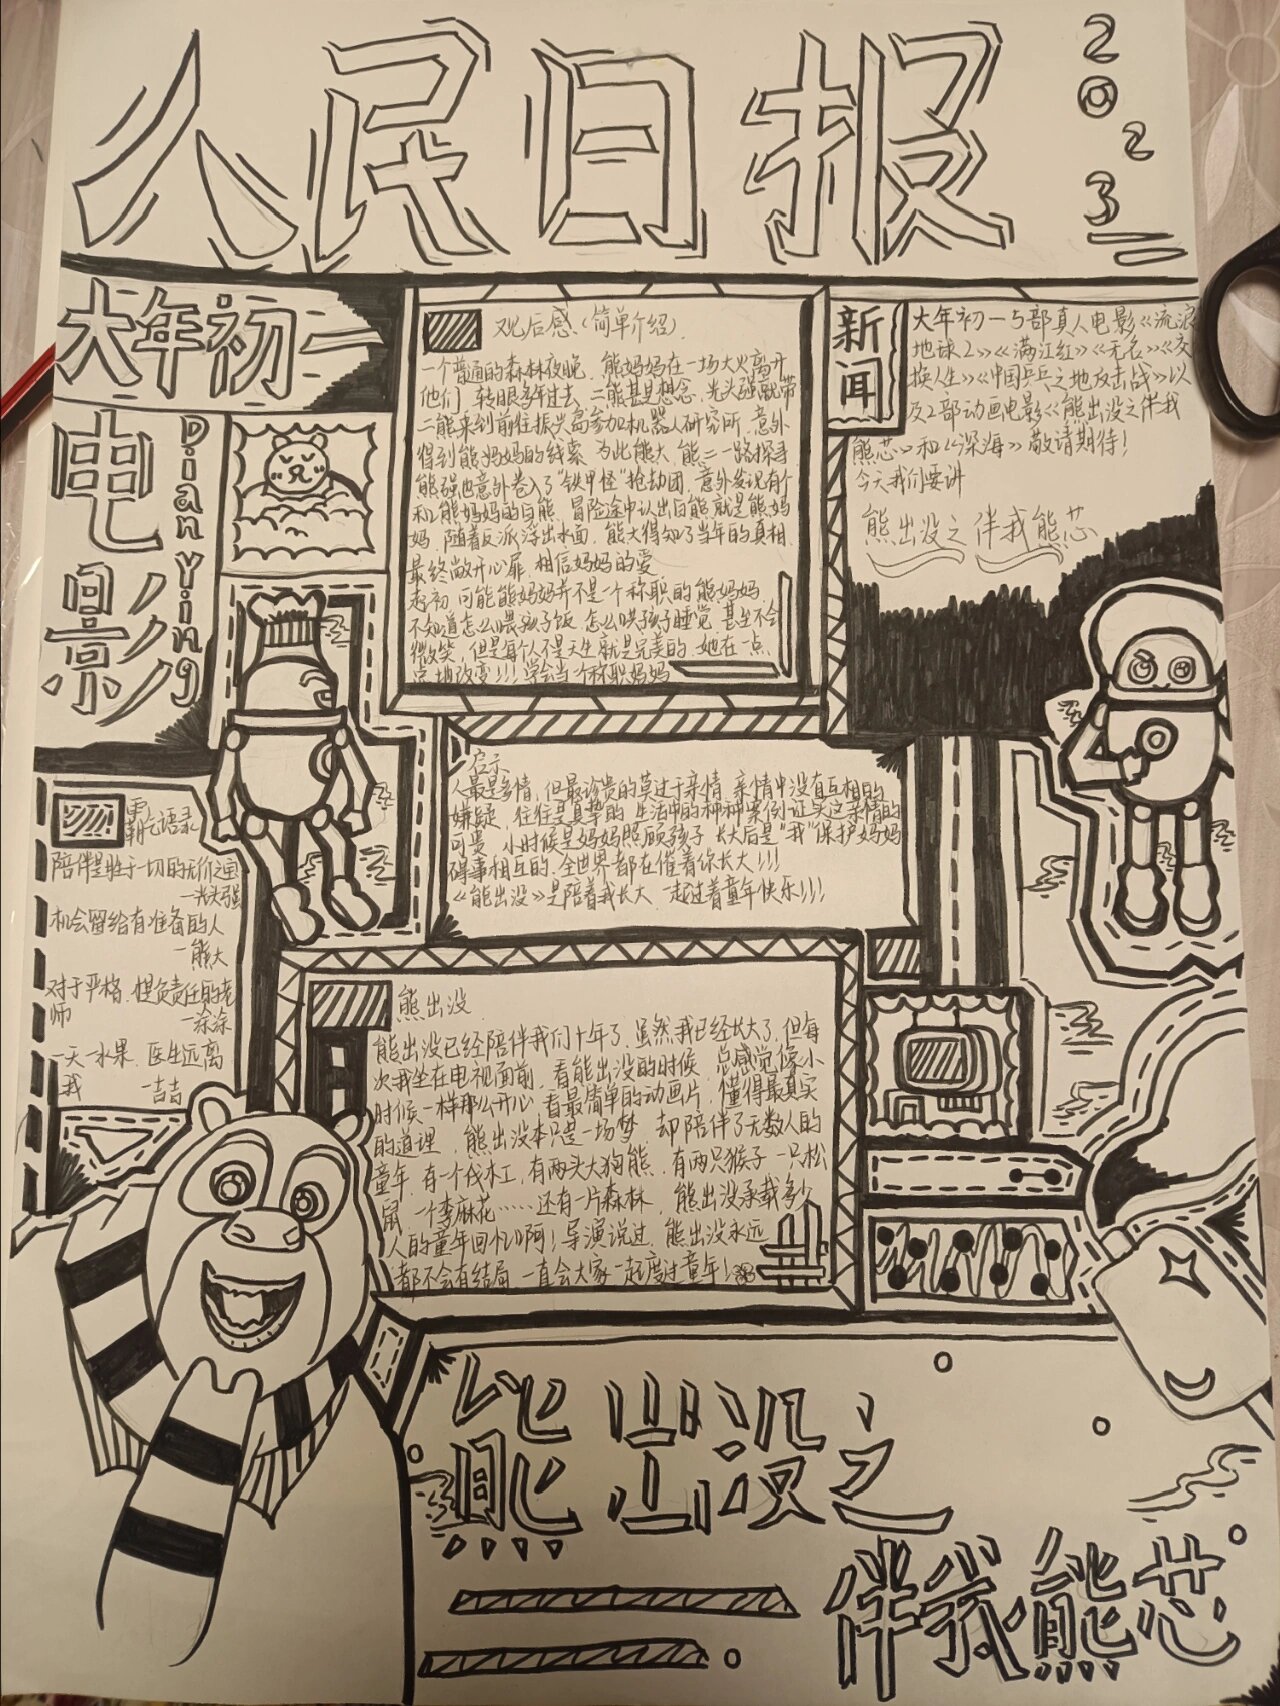 人民日报
2023
大年初一
电影
Dian Ying
观后感(简单介绍)
一个普通的森林夜晚 熊妈妈在一场大火离开
他们 转眼多年过去 二熊甚是想念 光头强就带
二熊来到前往振兴岛参加机器人研究所 意外
得到熊妈妈的线索 为此熊大、熊二一路探寻
熊强也意外卷入了"铁甲怪"抢劫团 意外发现有个
和熊妈妈的白熊 冒险途中认出白熊就是熊妈
妈 随着反派浮出水面 熊大得知了当年的真相
最终敞开心扉 相信妈妈的爱
起初 可能熊妈妈并不是个称职的熊妈妈
不知道怎么喂孩子饭 怎么哄孩子睡觉 甚至不会
微笑 但是每个人不是天生就是完美的 她在一点
点地改变!!! 学会当个称职妈妈
新闻
大年初一5部真人电影《流浪
地球2》《满江红》《无名》《交
换人生》《中国乒乓之绝地反击战》以
及2部动画电影《熊出没之伴我
熊芯》和《深海》敬请期待!
今天我们要讲
熊出没之伴我熊芯
启示
人最是多情 但最珍贵的莫过于亲情 亲情中没有互相的
嫌疑 往往是真挚的 生活中的种种案例证实这亲情的
可爱 小时候是妈妈照顾孩子 长大后是"我"保护妈妈
碍事相互的 全世界都在催着你长大!!!
《熊出没》是陪着我长大 一起过着童年快乐!!!
语录
陪伴是胜于一切的无价之宝
—光头强
机会留给有准备的人
—熊大
对于严格 担负责任的老
师
—涂涂
一天一水果 医生远离
我
—吉吉
熊出没
熊出没已经陪伴我们十年了 虽然我已经长大了 但每
次我坐在电视面前 看熊出没的时候 总感觉像小
时候一样那么开心 看最简单的动画片 懂得最真实
的道理 熊出没本只是一场梦 却陪伴了无数人的
童年 有一个伐木工 有两头大狗熊 有两只猴子 一只松
鼠 一个李麻花……还有一片森林 熊出没承载多少
人的童年回忆啊! 导演说过 熊出没永远
都不会有结局 一直会大家一起度过童年!
熊出没之
伴我熊芯